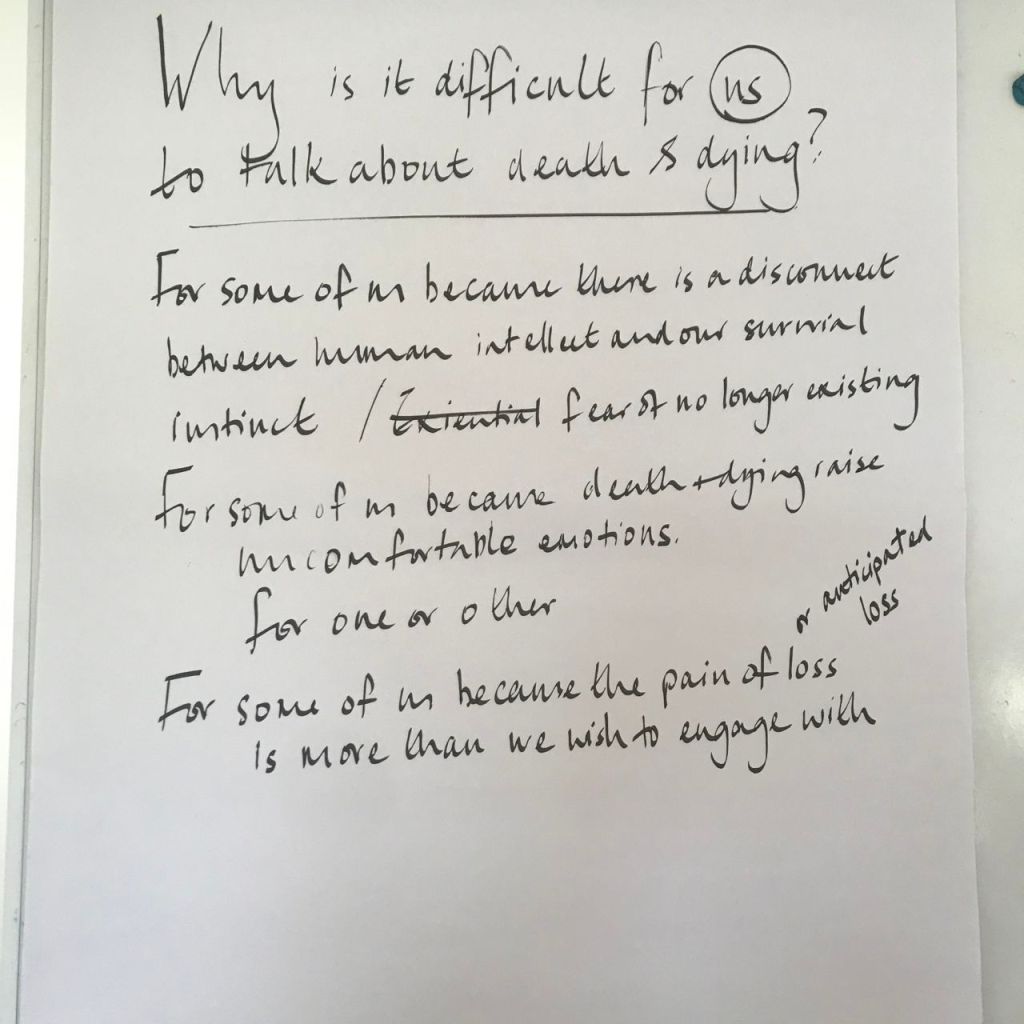 Why is it difficult for us
to talk about death & dying?
For some of us because there is a disconnect
between human intellect and our survival
instinct / Existential fear of no longer existing
For some of us because death + dying raise
uncomfortable emotions.
for one or other
or anticipated
loss
For some of us because the pain of loss
is more than we wish to engage with